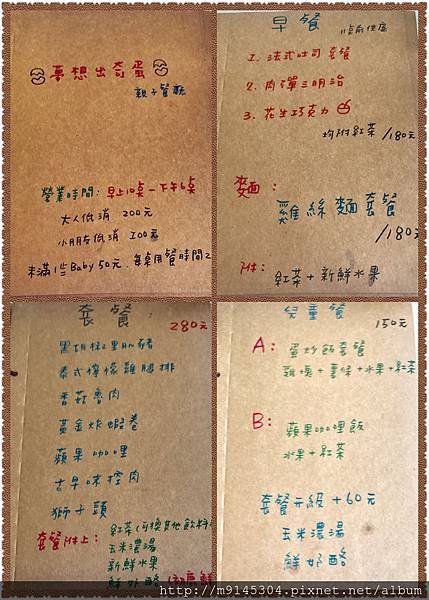 夢想出奇蛋
親子餐廳
營業時間：早上10點－下午6點
大人低消 200元
小朋友低消 100元
未滿1歲Baby 50元. 每桌用餐時間2
早餐
11點前供應
1. 法式吐司套餐
2. 肉彈三明治
3. 花生巧克力
均附紅茶/180元
麵：
雞絲麵套餐
/180元
附：
紅茶＋新鮮水果
套餐：
280元
黑胡椒里肌豬
泰式檸檬雞腿排
香菇魯肉
黃金炸蝦卷
蘋果咖哩
古早味控肉
獅子頭
套餐附上：
紅茶(可換其他飲料
玉米濃湯
新鮮水果
鮮奶酪
兒童餐
150元
A：
蛋炒飯套餐
雞塊＋薯條＋水果＋紅茶
B：
蘋果咖哩飯
水果＋紅茶
套餐升級＋60元
玉米濃湯
鮮奶酪
http://m9145304.pixnet.net/album